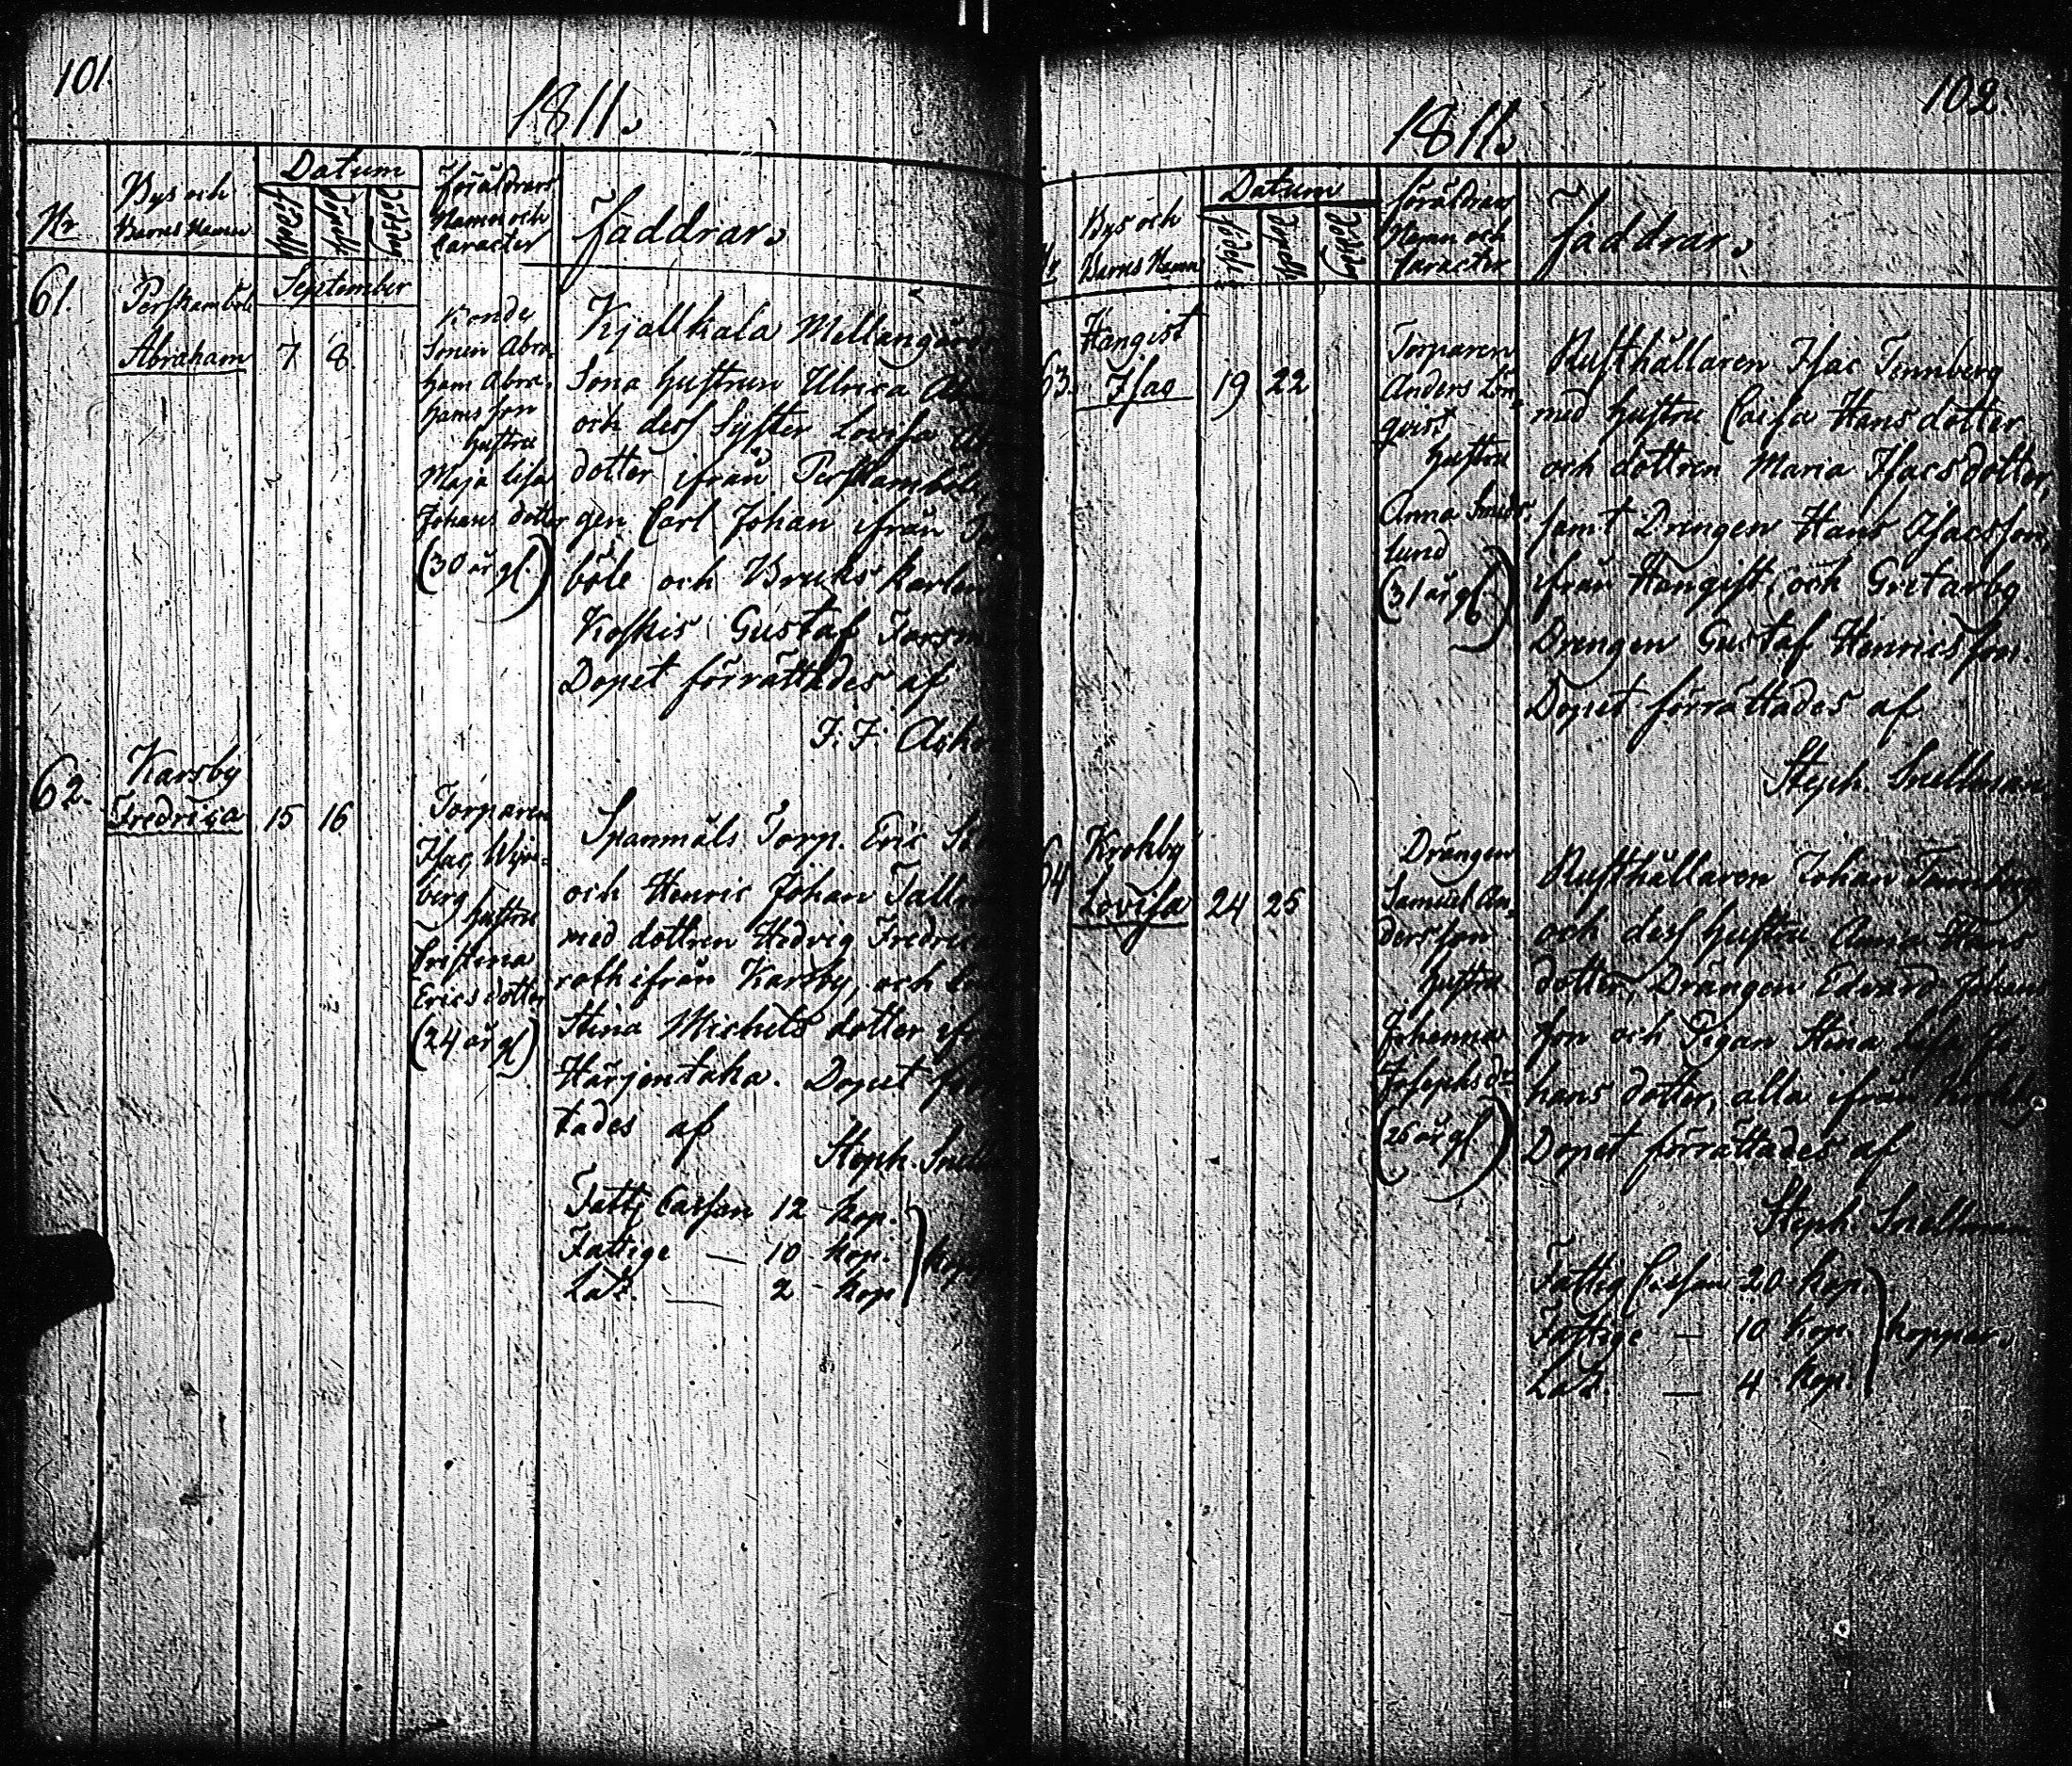 101.
1811.
Nr
Bys och
Barns Namn
Datum
födelse
döpelse
Föräldrars
Namn och
Caracter
Faddrar.
September
61.
Perskamböle
Abraham 7 8
Bonde
Sonen Abra-
ham Abra-
hams son
hustru
Maja Lisa
Johans dotter
(30 år gl.)
Kjallkala Mellangård
Sona hustrun Ulrica
och dess Syster Lovisa
dotter ifrån Perskamböle,
gen Carl Johan ifrån
böle och Bruks karlen
Koskis Gustaf
Dopet förrättades af
J. F.
62.
Karsby
Fredrica 15 16
Torparen
Isac
berg hustru
Cristina
Erics dotter
(24 år gl)
Spanmäls Torp. Eric
och Henric Johan
med dottren Hedvig
roth ifrån Karsby, och
Stina Michels dotter
Härjentaka. Dopet
tades af
Steph.
Fattig Cassan 12 kop.
Fattige — 10 kop.
Lad. — 2 kop
102.
1811.
Bys och
Barns Namn
Datum
födelse
döpelse
Föräldrars
Namn och
Caracter
Faddrar.
Hangist
63. Isac 19 22
Torparen
Anders Lön-
qvist
hustru
Anna
lund
(31 år gl.)
Rusthållaren Isac Tennberg
med hustru Caisa Hans dotter
och dottren Maria Isacs dotter,
samt Drengen Hans Isacsson,
ifrån Hangist, och Gretarby
Drengen Gustaf Henricsson.
Dopet förrättades af
Steph. Snellman.
64
Krohby
Lovisa 24 25
Drängen
Samuel An-
dersson
hustru
Johanna
Josephs dr
(26 år gl.)
Rusthållaren Johan
och dess hustru Anna Hans
dotter, Drängen Edvard Johans
son och Pigan Stina Lisa Jo-
hans dotter, alla ifrån
Dopet förrättades af
Steph Snellman
Fattig Cassan 20 kop.
Fattige — 10 kop. koppar.
Lad. — 4 kop.